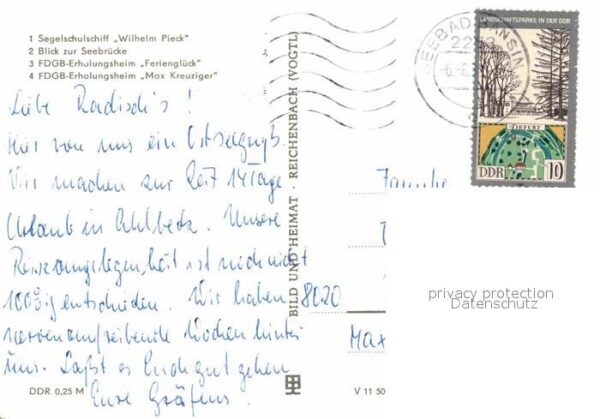 1 Segelschulschiff „Wilhelm Pieck"
2 Blick zur Seebrücke
3 FDGB-Erholungsheim „Ferienglück"
4 FDGB-Erholungsheim „Max Kreuziger"
Liebe Radischi's!
Hier von uns ein Ostseegruß.
Wir machen zur Zeit 14 Tage
Urlaub in Ahlbeck. Unsere
Reiseangelegenheit ist noch nicht
100%ig entschieden. Wir haben
nervenaufreibende Wochen hinter
uns. Laßt es Euch gut gehen
Eure Gräfens!
DDR 0,25 M
BILD UND HEIMAT · REICHENBACH (VOGTL)
V 11 50
SEEBAD BANSIN
LANDSCHAFTSPARKS IN DER DDR
TIEFURT
DDR 10
Familie
8020
Max
privacy protection
Datenschutz